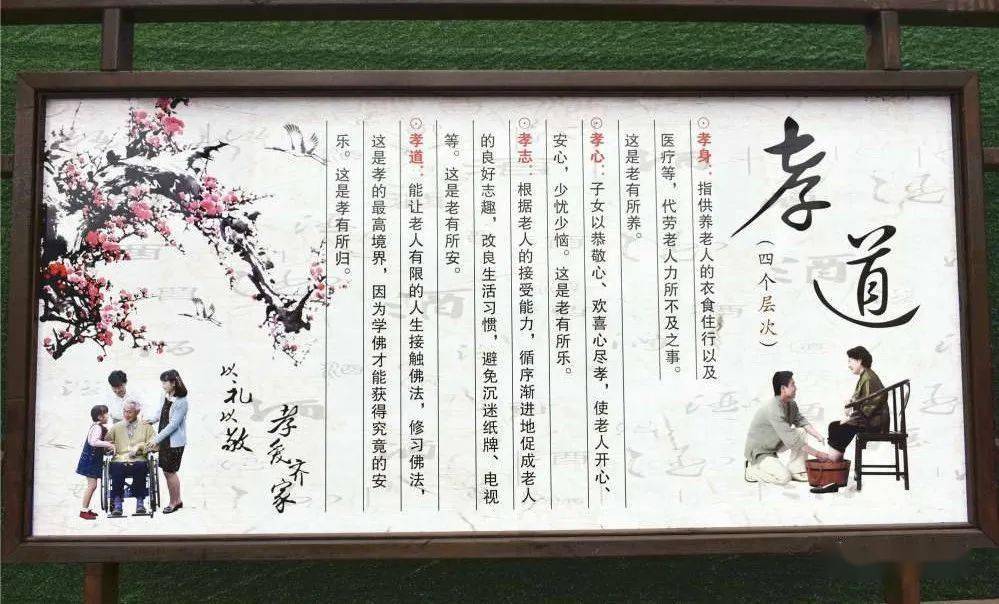 孝道
（四个层次）
孝身：指供养老人的衣食住行以及
医疗等，代劳老人力所不及之事。
这是老有所养。
孝心：子女以恭敬心、欢喜心尽孝，使老人开心、
安心，少忧少恼。这是老有所乐。
孝志：根据老人的接受能力，循序渐进地促成老人
的良好志趣，改良生活习惯，避免沉迷纸牌、电视
等。这是老有所安。
孝道：能让老人有限的人生接触佛法，修习佛法，
这是孝的最高境界，因为学佛才能获得究竟的安
乐。这是孝有所归。
孝爱齐家
以礼以敬